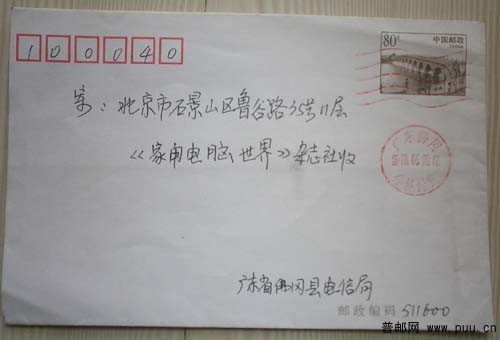 100040
80分
中国邮政
CHINA
寄：北京市石景山区鲁谷路35号11层
《家用电脑世界》杂志社收
广东省佛冈县电信局
邮政编码 511600
普邮网 www.puu.cn